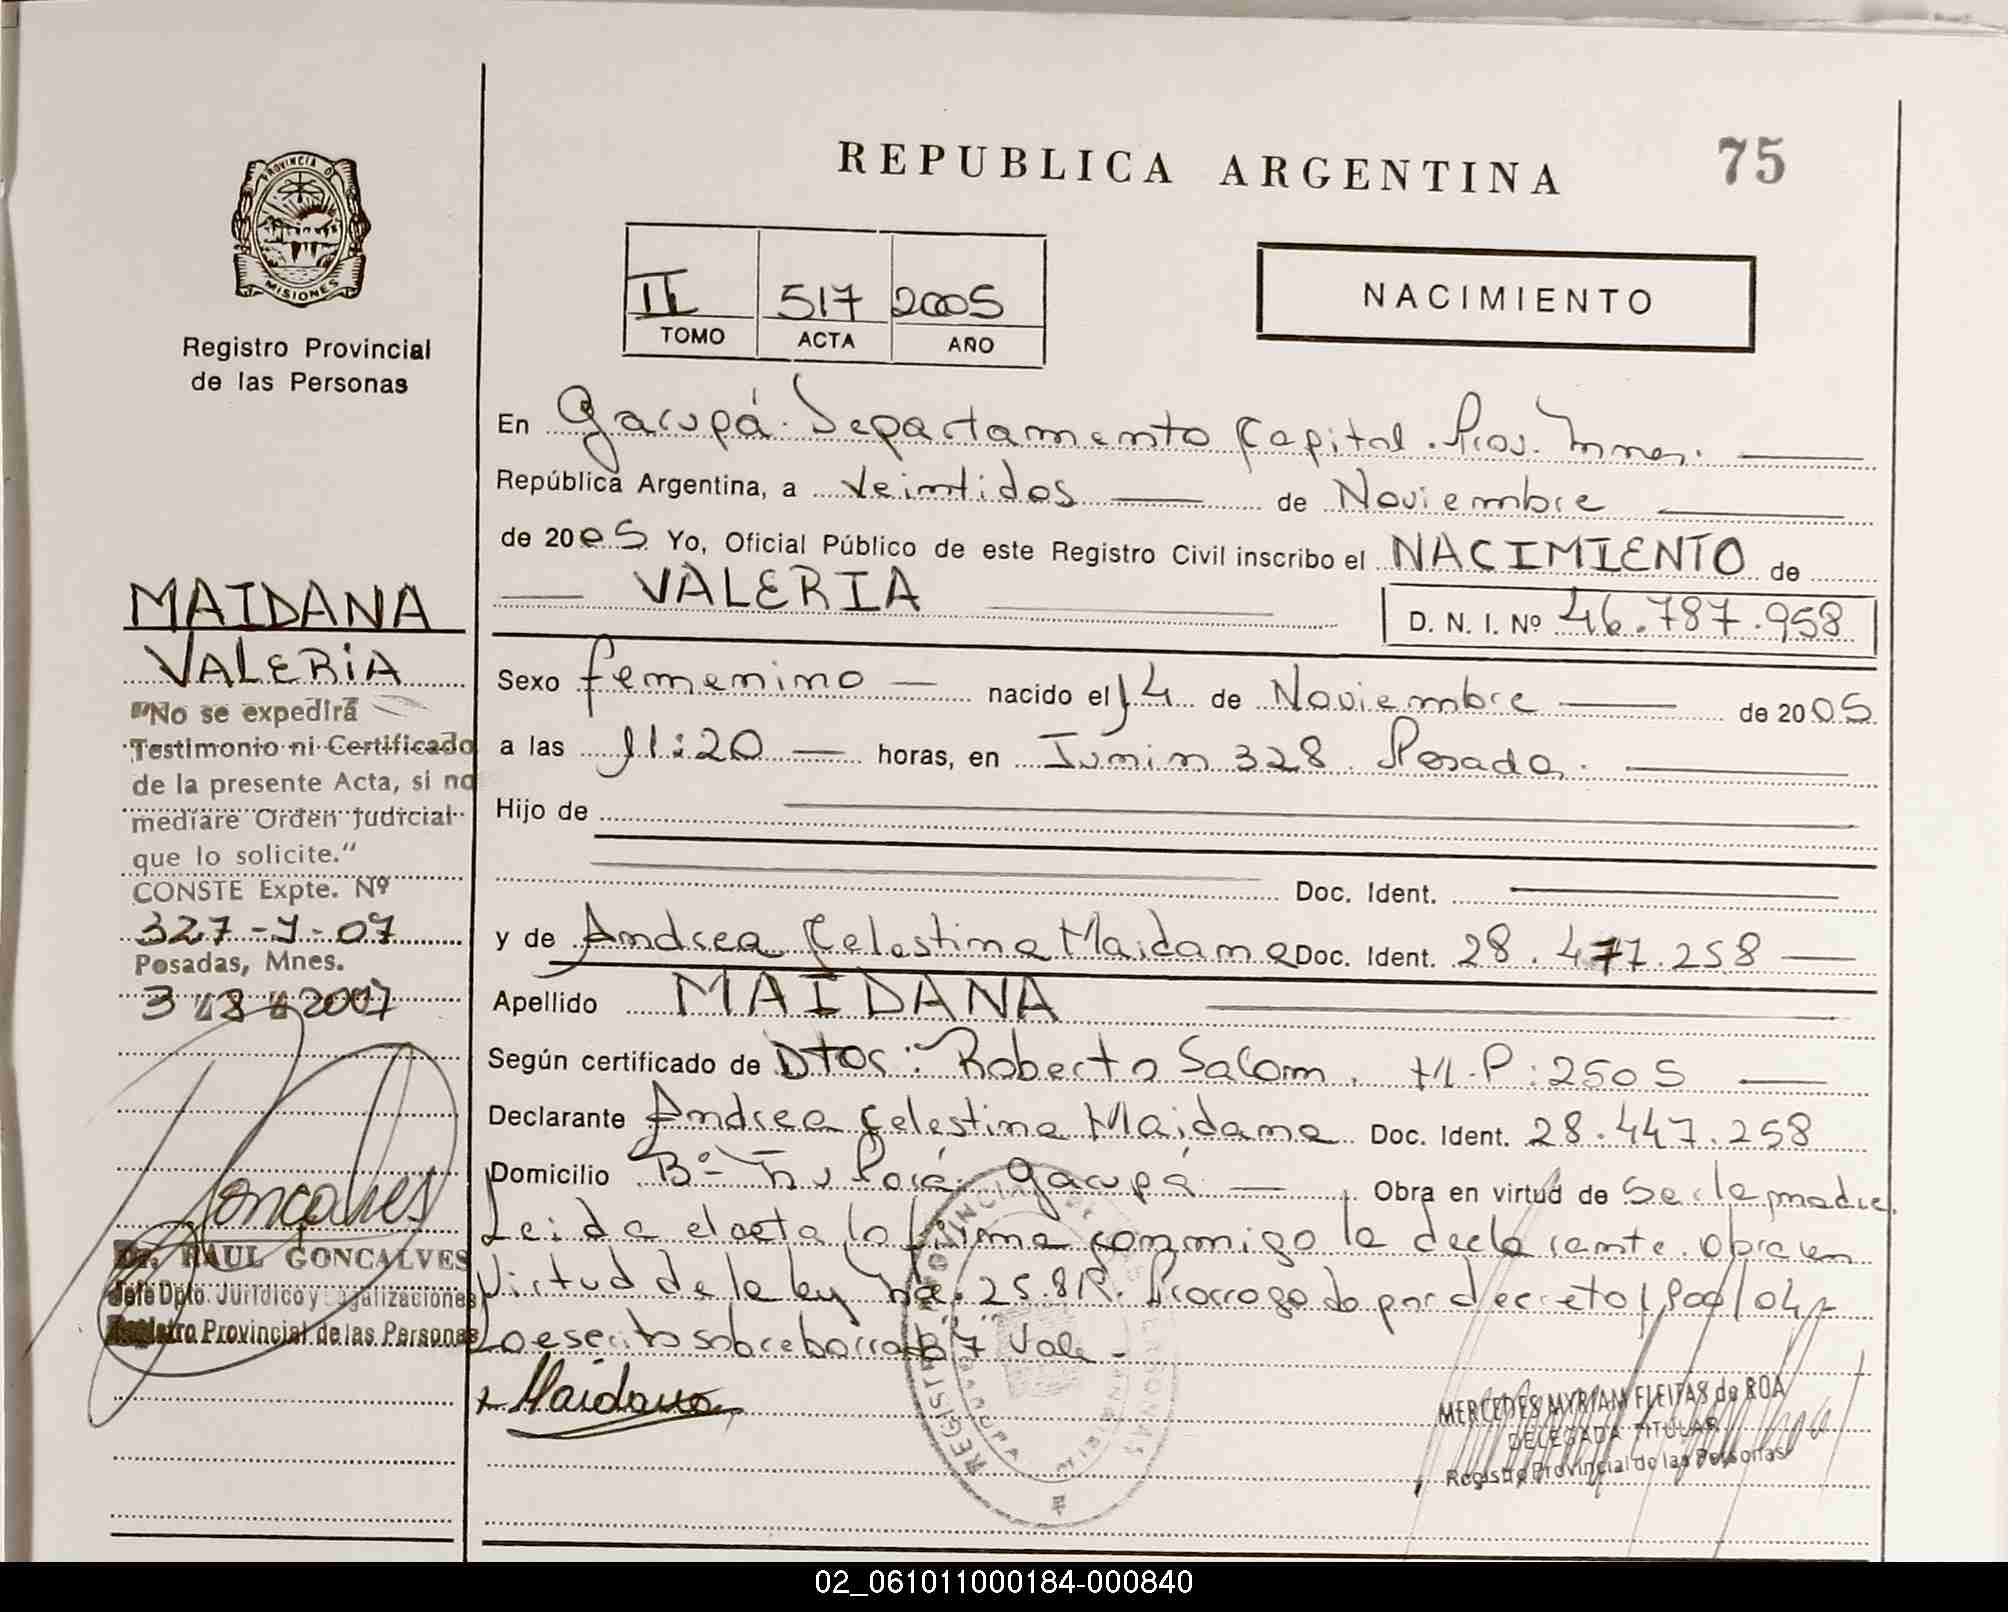 REPUBLICA ARGENTINA
75
PROVINCIA DE
MISIONES
Registro Provincial
de las Personas
II 517 2005
TOMO ACTA AÑO
NACIMIENTO
En Garupá. Departamento Capital. Prov. Mnes.
República Argentina, a Veintidos de Noviembre
de 2005 Yo, Oficial Público de este Registro Civil inscribo el NACIMIENTO de
VALERIA
D. N. I. Nº 46.787.958
Sexo femenino nacido el 14 de Noviembre de 2005
a las 11:20 horas, en Junin 328. Posadas.
Hijo de
Doc. Ident.
y de Andrea Celestina Maidana Doc. Ident. 28.477.258
Apellido MAIDANA
Según certificado de Dtor: Roberto Salom. M.P: 2505
Declarante Andrea Celestina Maidana Doc. Ident. 28.447.258
Domicilio Bº Garupá Obra en virtud de Ser la madre.
Leida el acta la firma conmigo la declarante. Obra en
Virtud de la ley Nº. 25.819. Prorrogado por decreto 1900/04
Lo escrito sobre borrado "7" Vale -
Maidana
MERCEDES MYRIAM FLEITAS de ROA
DELEGADA TITULAR
Registro Provincial de las Personas
MAIDANA
VALERIA
"No se expedirá
Testimonio ni Certificado
de la presente Acta, si no
mediare Orden judicial
que lo solicite."
CONSTE Expte. Nº
327-J-07
Posadas, Mnes.
3 2007
Goncalves
Dr. RAUL GONCALVES
Jefe Dpto. Jurídico y Legalizaciones
Registro Provincial de las Personas
02_061011000184-000840